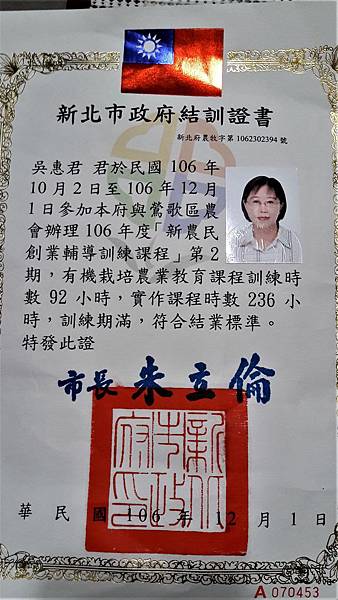 新北市政府結訓證書
新北府農牧字第 1062302394 號
吳惠君 君於民國 106 年
10 月 2 日至 106 年 12 月
1 日參加本府與鶯歌區農
會辦理 106 年度「新農民
創業輔導訓練課程」第 2
期，有機栽培農業教育課程訓練時
數 92 小時，實作課程時數 236 小
時，訓練期滿，符合結業標準。
特發此證
市長 朱立倫
新北市政府印
華民國 106 年 12 月 1 日
A 070453